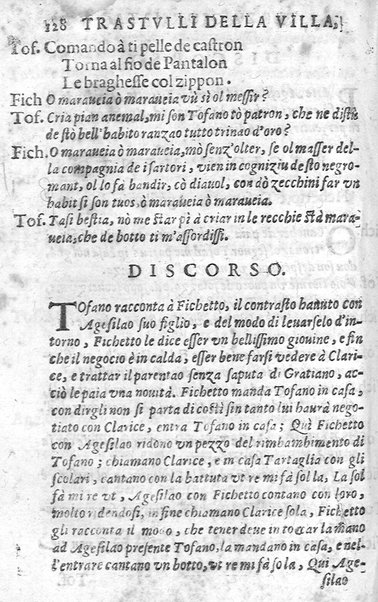 328 TRASTVLLI DELLA VILLA,
Tof. Comando à ti pelle de castron
Torna al fio de Pantalon
Le braghesse col zippon.
Fich O maraueia ò maraueia vù sì ol messir?
Tof. Cria pian anemal, mi son Tofano tò patron, che ne distu
de stò bell'habito ranzao tutto trinao d'oro?
Fich. O maraueia ò maraueia, mò senz'olter, se ol masser del-
la compagnia de i sartori, vien in cogniziu de sto negro-
mant, ol lo fà bandir, cò diauol, con dò zecchini far vn
habit sì son tuos, ò maraueia ò maraueia.
Tof. Tasi bestia, nò me star pì à criar in le recchie stà mara-
ueia, che de botto ti m'assordissi.
DISCORSO.
TOfano racconta à Fichetto, il contrasto hauuto con
Agesilao suo figlio, e del modo di leuarselo d'in-
torno, Fichetto le dice esser vn bellissimo giouine, e fin
che il negocio è in calda, esser bene farsi vedere à Clari-
ce, e trattar il parentao senza saputa di Gratiano, ac-
ciò le paia vna nouità. Fichetto manda Tofano in casa,
con dirgli non si parta di costì sin tanto lui haurà nego-
tiato con Clarice, entra Tofano in casa; Quì Fichetto
con Agesilao ridono vn pezzo del rimbambimento di
Tofano; chiamano Clarice, e in casa Tartaglia con gli
scolari, cantano con la battuta vt re mi fà sol la, La sol
fà mi re vt, Agesilao con Fichetto contano con loro,
molto ridendosi, in fine chiamano Clarice sola, Fichetto
gli racconta il modo, che tener deue in toccar la mano
ad Agesilao presente Tofano, la mandano in casa, e nel-
l'entrare cantano vn botto, vt re mi fà sol a, Qui Age-
silao